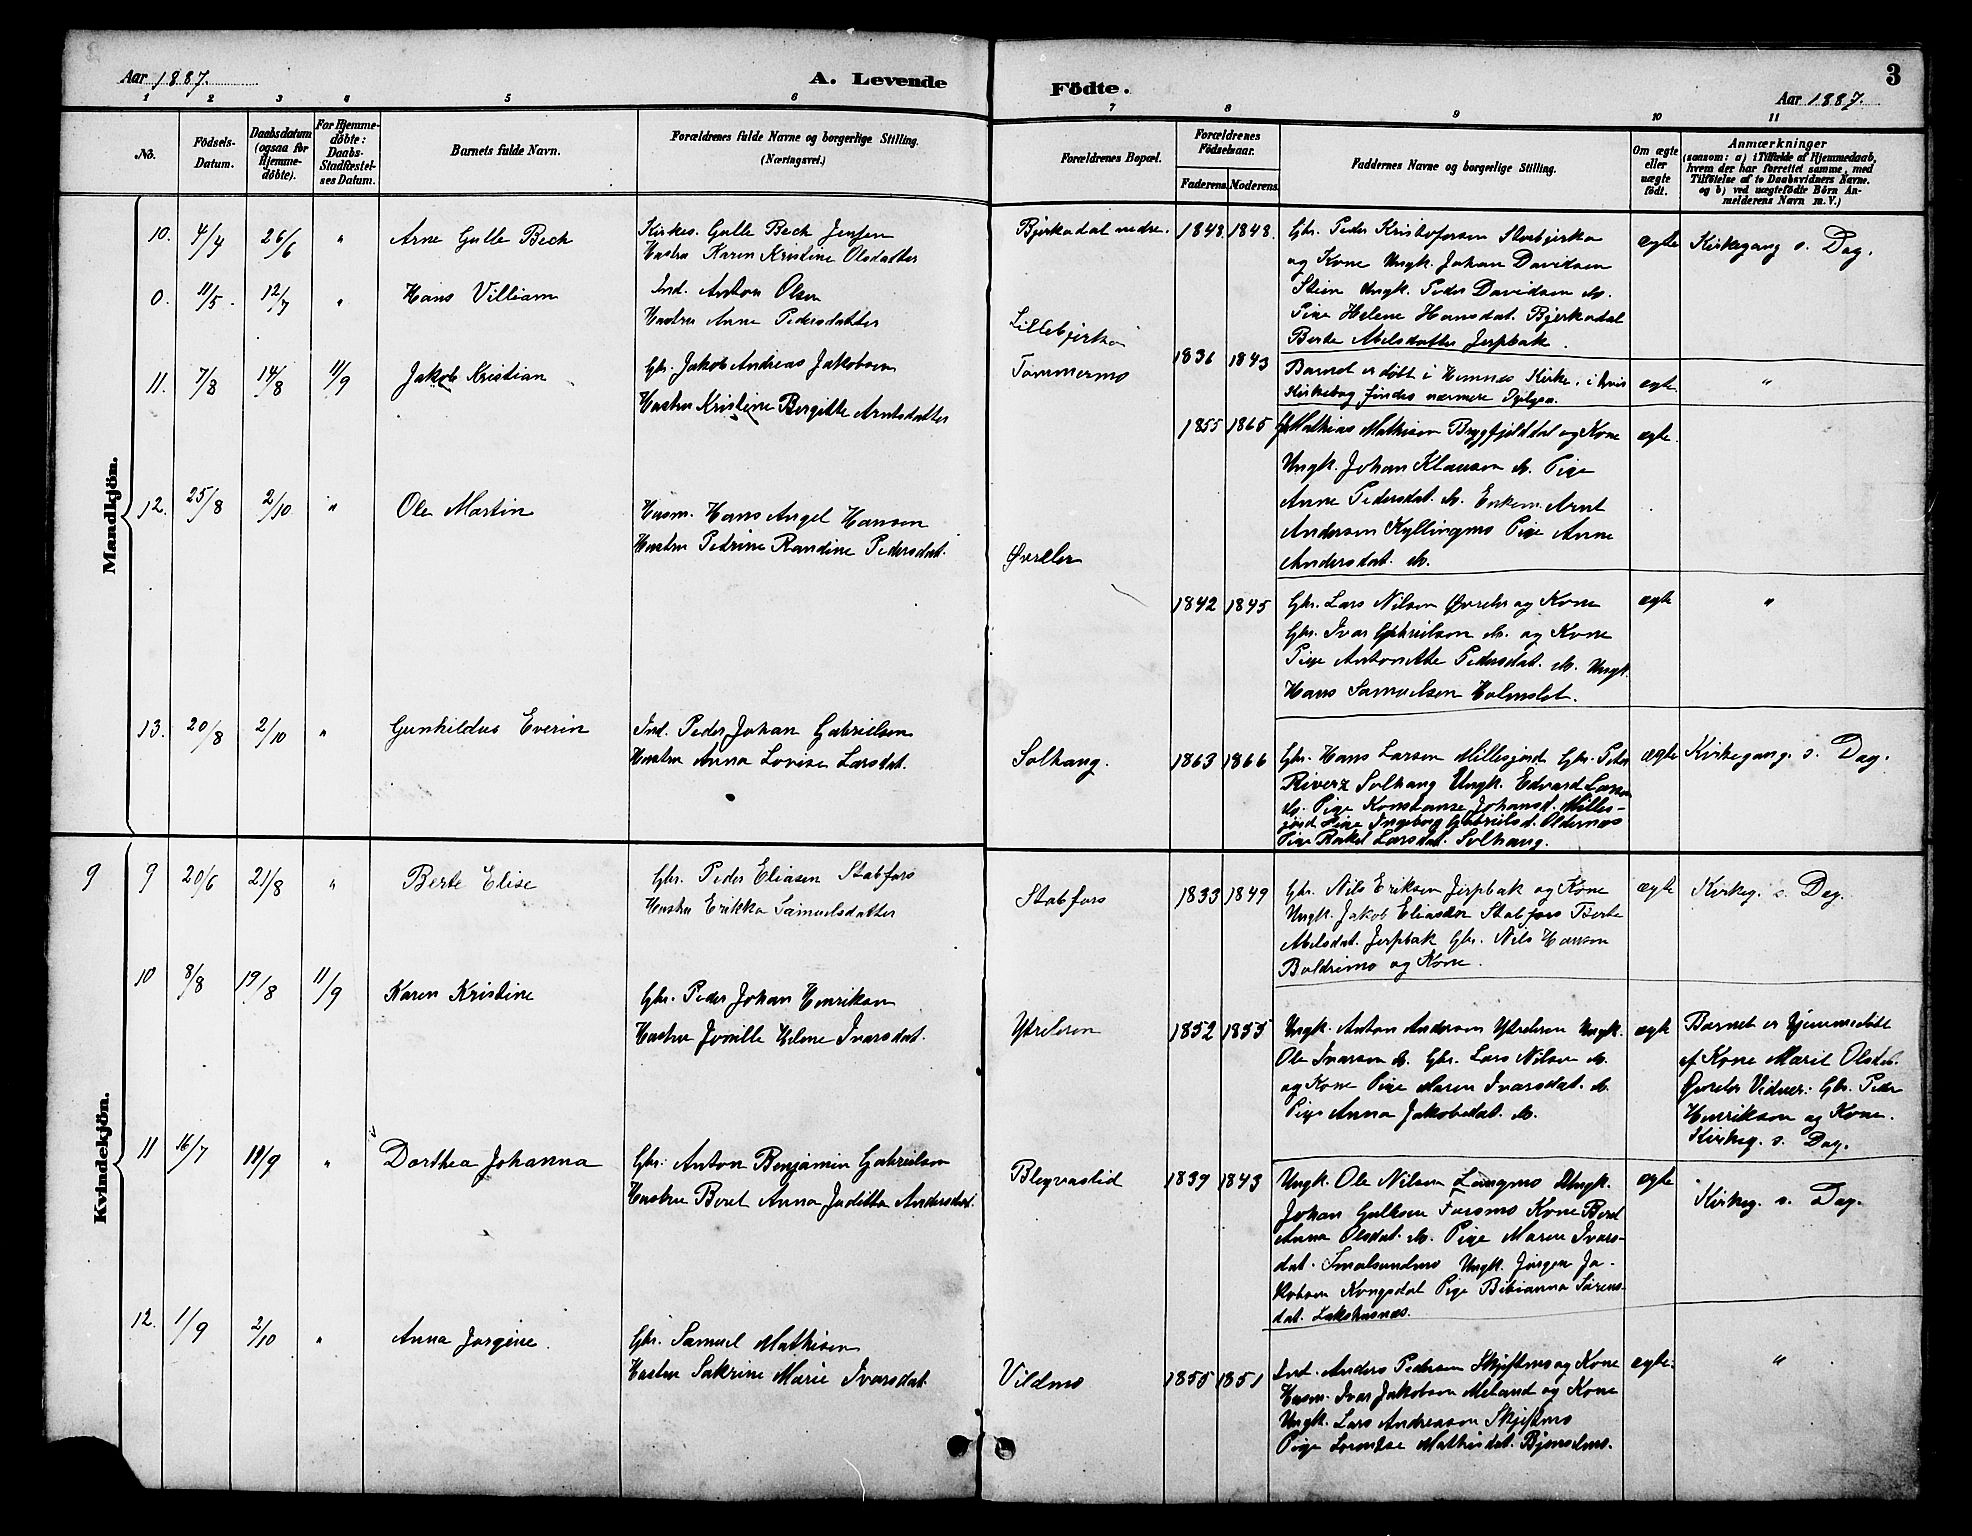 Aar 1887.
A. Levende
Födte.
Aar 1887.
3
1 2 3 4 5 6 7 8 9 10 11
No.
Födsels-
Datum.
Daabsdatum
(ogsaa for
Hjemme-
döbte).
For Hjemme-
döbte:
Daabs-
Stadfæstel-
ses Datum.
Barnets fulde Navn.
Forældrenes fulde Navne og borgerlige Stilling.
(Næringsvei.)
Forældrenes Bopæl.
Forældrenes
Födselsaar.
Faderens. Moderens.
Faddernes Navne og borgerlige Stilling.
Om ægte
eller
uægte
født.
Anmærkninger
(saasom: a) i Tilfælde af Hjemmedaab,
hvem der har forrettet samme, med
Tilföielse af to Daabsvidners Navne.
og b) ved uægtefödte Börn An-
melderens Navn m. V.)
Mandkjön.
10. 4/4 26/6 " Arne Gulle Bech
Kirkes. Gulle Bech Jensen
Hustru Karen Kristine Olsdatter
Bjerkadal nedre. 1848. 1848.
Gbr. Peder Kristofersen Storbjerka
og Kone Ungk. Johan Davidsen
Stien Ungk. Peder Davidsen ds.
Pige Helene Hansdat. Bjerkadal
Berte Abelsdatter Jerpbak.
ægte Kirkegang s. Dag.
0. 11/5. 12/7 " Hans Villiam
Ind. Anton Olsen
Hustru Anne Pedersdatter
Lillebjerka
11. 7/8 14/8 11/9 Jakob Kristian
Gbr. Jakob Andreas Jakobsen
Hustru Kristine Bergitte Arntsdatter
Tømmermo 1836 1843
Barnet er døbt i Hemnes Kirke, i hvis
Kirkebog findes nærmere Oplysn.
ægte "
1855 1865 Gbr. Mathias Mathisen Brygfjelddal og Kone
Ungk. Johan Klausen ds. Pige
Anne Pedersdat. ds. Enkem. Arnt
Andersen Kyllingmo Pige Anne
Andersdat. ds.
ægte.
12. 25/8 2/10 " Ole Martin
Husm. Hans Angel Hansen
Hustru Petrine Randine Pedersdat.
Øvreler
1842 1845 Gbr. Lars Nilsen Øvreler og Kone
Gbr. Ivar Gabrielsen ds. og Kone
Pige Antonette Pedersdat. ds. Ungk.
Hans Samuelsen Holmslet.
ægte "
13. 20/8 2/10 " Gunhildus Everin
Ind. Peder Johan Gabrielsen
Hustru Anna Lovise Larsdat.
Solhaug. 1863 1866
Gbr. Hans Larsen Millesjord Gbr. Peter
Riverz Solhaug Ungk. Edvard Larsen
ds. Pige Konstanse Johansd. Milles-
jord Pige Ingeborg Gabrielsd. Oldernes
Pige Rakel Larsdat. Solhaug.
ægte Kirkegang. s. Dag.
Kvindekjön.
9 9 20/6 21/8 " Berte Elise
Gbr. Peder Eliasen Stabfors
Hustru Erikka Samuelsdatter
Stabfors 1833 1849
Gbr. Nils Eriksen Jerpbak og Kone
Ungk. Jakob Eliassen Stabfors Berte
Abelsdat. Jerpbak Gbr. Nils Hansen
Boldrimo og Kone.
ægte Kirkeg. s. Dag.
10 8/8 19/8 11/9 Karen Kristine
Gbr. Peder Johan Henriksen
Hustru Jonille Helene Ivarsdat.
Ytreleren 1852 1855
Ungk. Anton Andersen Ytreleren Ungk.
Ole Ivarsen ds. Gbr. Lars Nilsen ds.
og Kone Pige Maren Ivarsdat. ds.
Pige Anna Jakobsdat. ds.
ægte Barnet er hjemmedøbt
af Kone Marit Olsdat.
Øvreler Vidner: Gbr. Peder
Henriksen og Kone.
Kirkeg. s. Dag.
11 16/7 19/9 " Dorthea Johanna
Gbr. Anton Benjamin Gabrielsen
Hustru Beret Anna Juditta Andersdat.
Bleqvaslid 1839 1843
Ungk. Ole Nilsen Langmo Ungk.
Johan Gulksen Forsmo Kone Beret
Anna Olsdat. ds. Pige Maren Ivars-
dat. Smalsundmo Ungk. Jørgen Ja-
kobsen Kongsdal Pige Bibianna Sørens-
dat. Lakshusnes.
ægte Kirkeg. s. Dag.
12. 1/9 2/10 " Anna Jorgine.
Gbr. Samuel Mathisen
Hustru Sakrine Marie Ivarsdat.
Vildmo 1855 1851
Ind. Anders Pedersen Skjeftmo og Kone
Husm. Ivar Jakobsen Meland og Kone
Ungk. Lars Andreasen Skjeftmo
Pige Lorentse Mathisdat. Bjønsdmo.
ægte. "